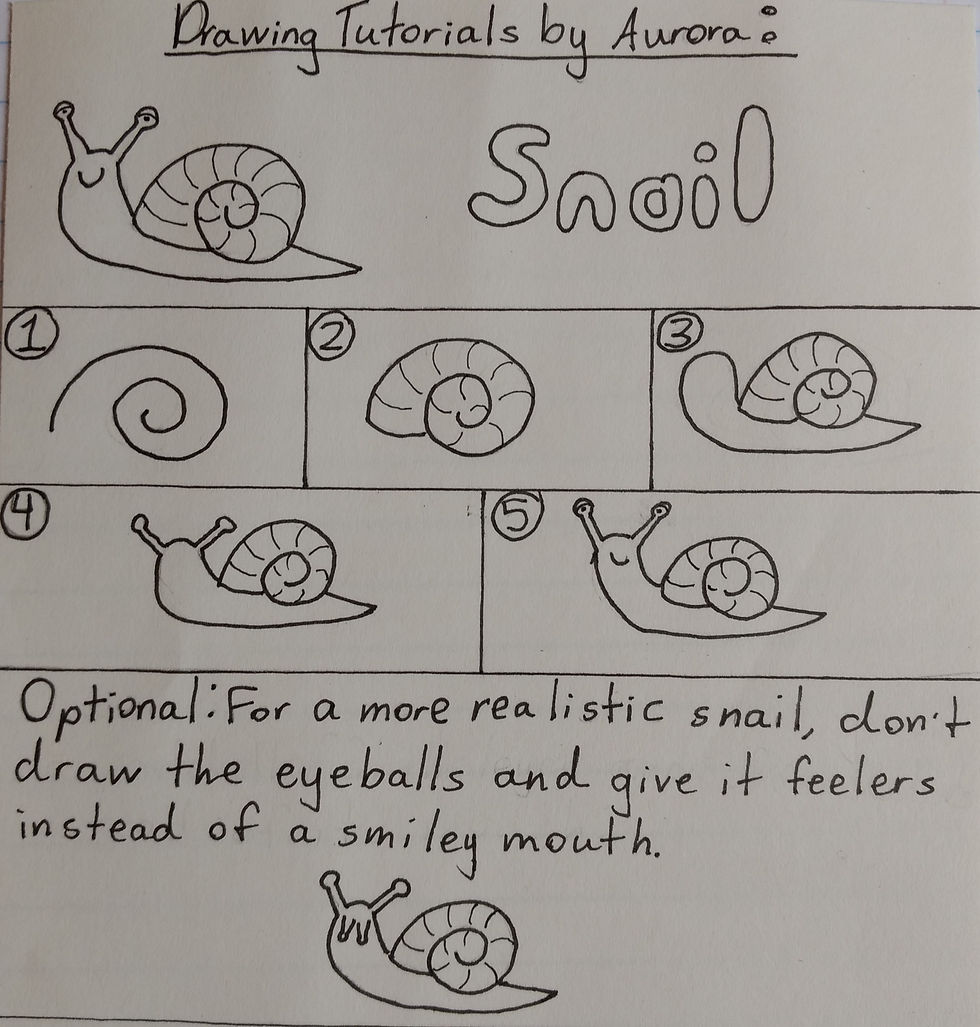 Drawing Tutorials by Aurora:
Snail
1
2
3
4
5
Optional: For a more realistic snail, don't
draw the eyeballs and give it feelers
instead of a smiley mouth.